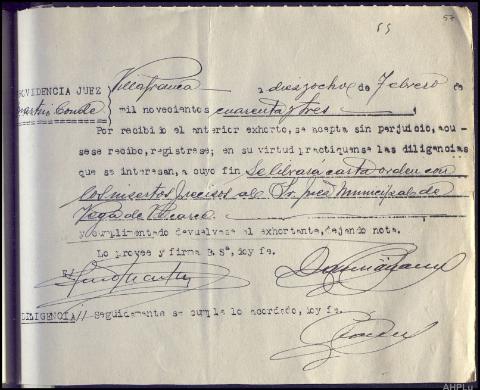 59
PROVIDENCIA JUEZ Villafranca a diez y ocho de Febrero de
Martin Conde mil novecientos cuarenta y tres
Por recibido el anterior exhorto, se acepta sin perjuicio, acu-
sese recibo, registrese; en su virtud practiquense las diligencias
que se interesan, a cuyo fin Se librará carta orden con
los insertos precisos al Sr. Juez Municipal de
Vega de Valcarce.
y cumplimentado devuelvase al exhortante, dejando nota.
Lo proveo y firma B. Sª, doy fe.
DILIGENCIA// Seguidamente se cumple lo acordado, doy fe.
AHPLu